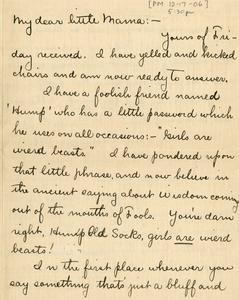 [PM 12-17-06]
5:30pm
My dear little Mama:-
Yours of Fri-
day received. I have yelled and kicked
chairs and am now ready to answer.
I have a foolish friend named
'Hump' who has a little password which
he uses on all occasions:- "Girls are
wierd beasts." I have pondered upon
that little phrase, and now believe in
the ancient saying about Wisdom coming
out of the mouths of Fools. You're darn
right, Hump Old Socks, girls are wierd
beasts!
In the first place whenever you
say something that's just a bluff and